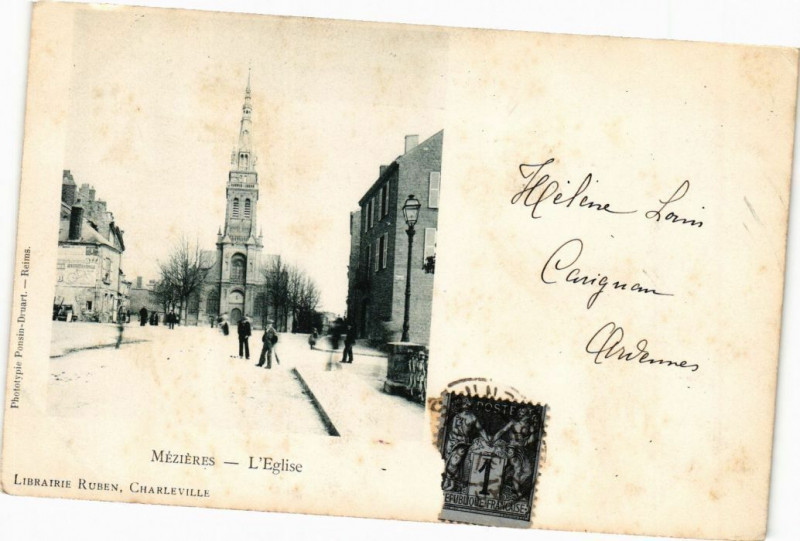 Phototypie Ponsin-Druart. — Reims.
MÉZIÈRES — L'Eglise
LIBRAIRIE RUBEN, CHARLEVILLE
Hélène
Carignan
Ardennes
POSTES
1
REPUBLIQUE FRANÇAISE